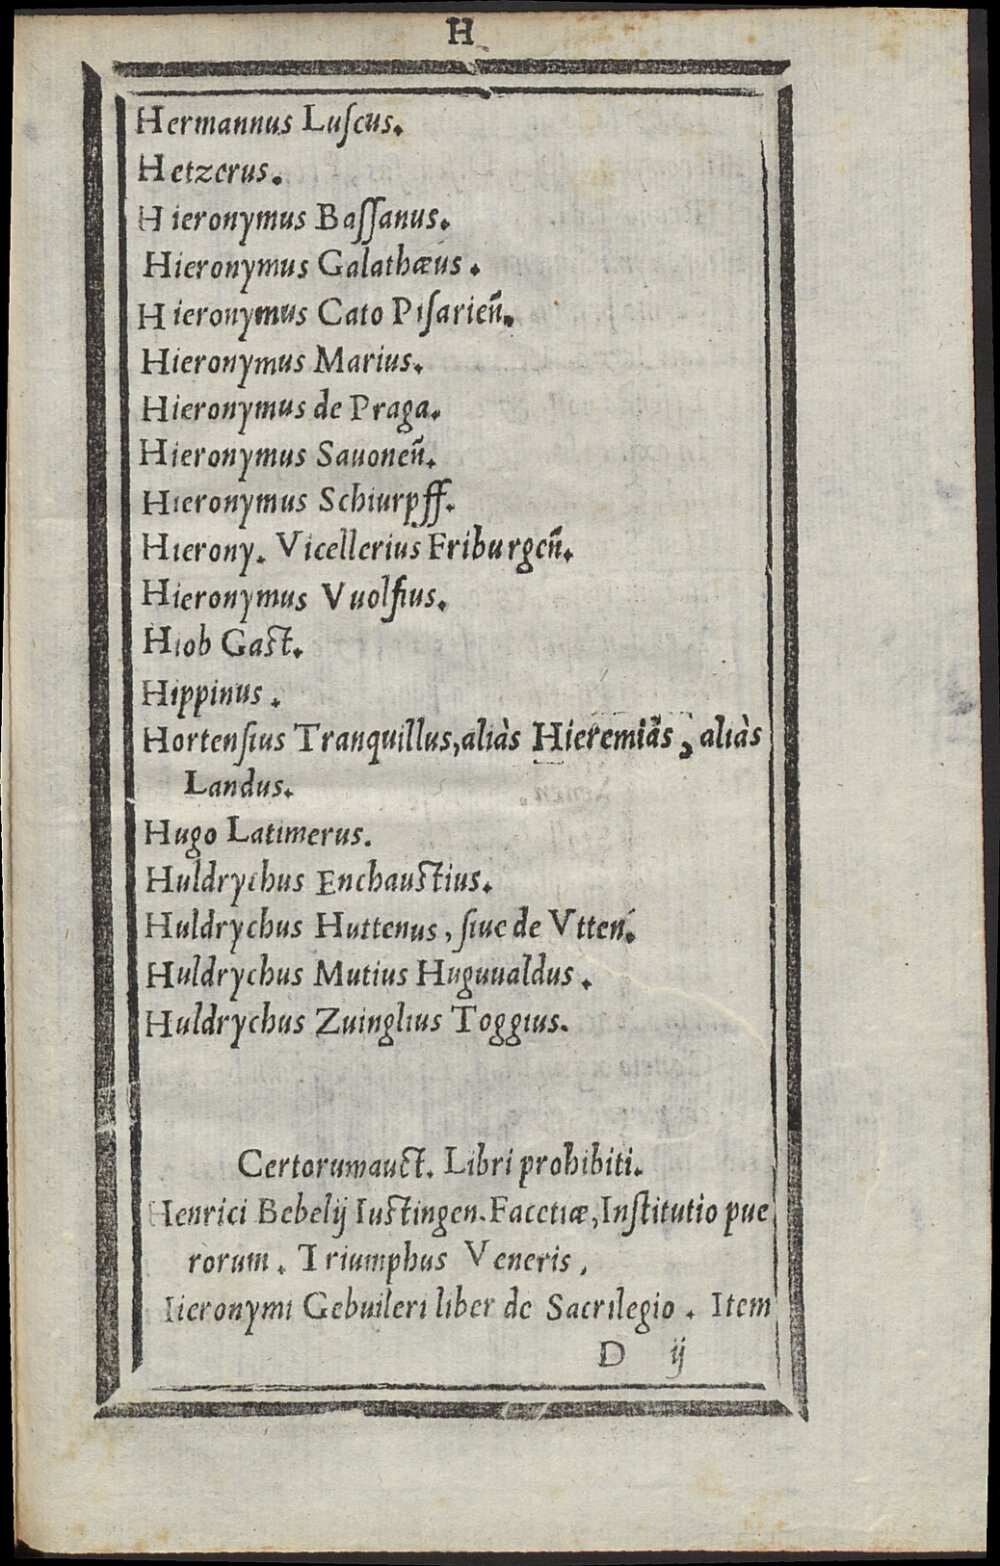 H
Hermannus Luſcus.
Hetzerus.
Hieronymus Baſſanus.
Hieronymus Galathæus.
Hieronymus Cato Piſarieñ.
Hieronymus Marius.
Hieronymus de Praga.
Hieronymus Sauoneñ.
Hieronymus Schiurpff.
Hierony. Vicellerius Friburgeñ.
Hieronymus Vuolfius.
Hiob Gast.
Hippinus.
Hortenſius Tranquillus, aliàs Hieremiãs, aliàs
Landus.
Hugo Latimerus.
Huldrychus Enchaustius.
Huldrychus Huttenus, ſiue de Vtten.
Huldrychus Mutius Huguualdus.
Huldrychus Zuinglius Toggius.
Certorum auct. Libri prohibiti.
Henrici Bebelij Iustingen. Facetiæ, Inſtitutio pue
rorum. Triumphus Veneris,
Hieronymi Gebuileri liber de Sacrilegio. Item
D ij